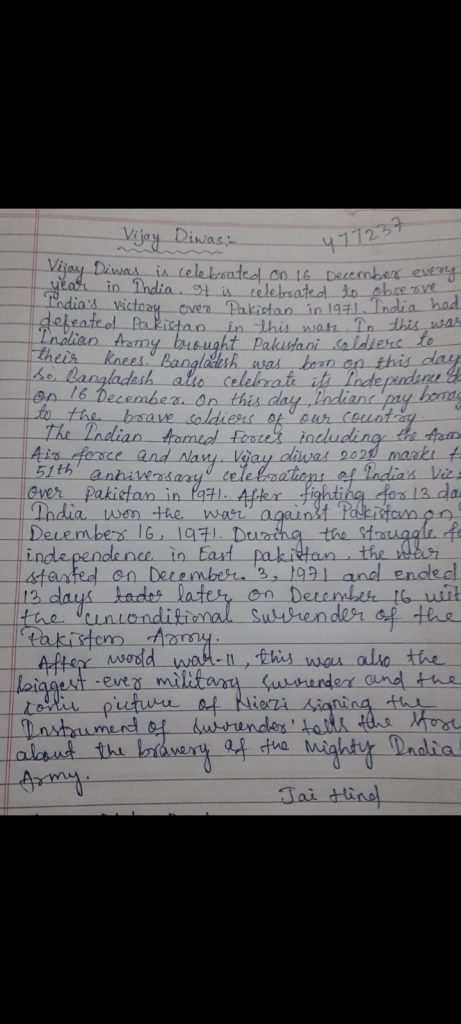 Vijay Diwas:-
477237
Vijay Diwas is celebrated on 16 December every
year in India. It is celebrated to observe
India's victory over Pakistan in 1971. India had
defeated Pakistan in this war. In this war
Indian Army brought Pakistani soldiers to
their knees. Bangladesh was born on this day
So, Bangladesh also celebrate its Independence
on 16 December. On this day, Indians pay homag
to the brave soldiers of our country.
The Indian Armed Forces including the Arm
Air force and Navy. Vijay diwas marks t
51th anniversary celebrations of India's Vic
over Pakistan in 1971. After fighting for 13 da
India won the war against Pakistan on
December 16, 1971. During the struggle fo
independence in East pakistan, the war
started on December. 3, 1971 and ended
13 days later on December 16 wit
the unconditional surrender of the
Pakistan Army.
After world war-II, this was also the
biggest-ever military surrender and the
iconic picture of Niazi signing the
Instrument of surrender' tells the stor
about the bravery of the Mighty India
Army.
Jai Hind